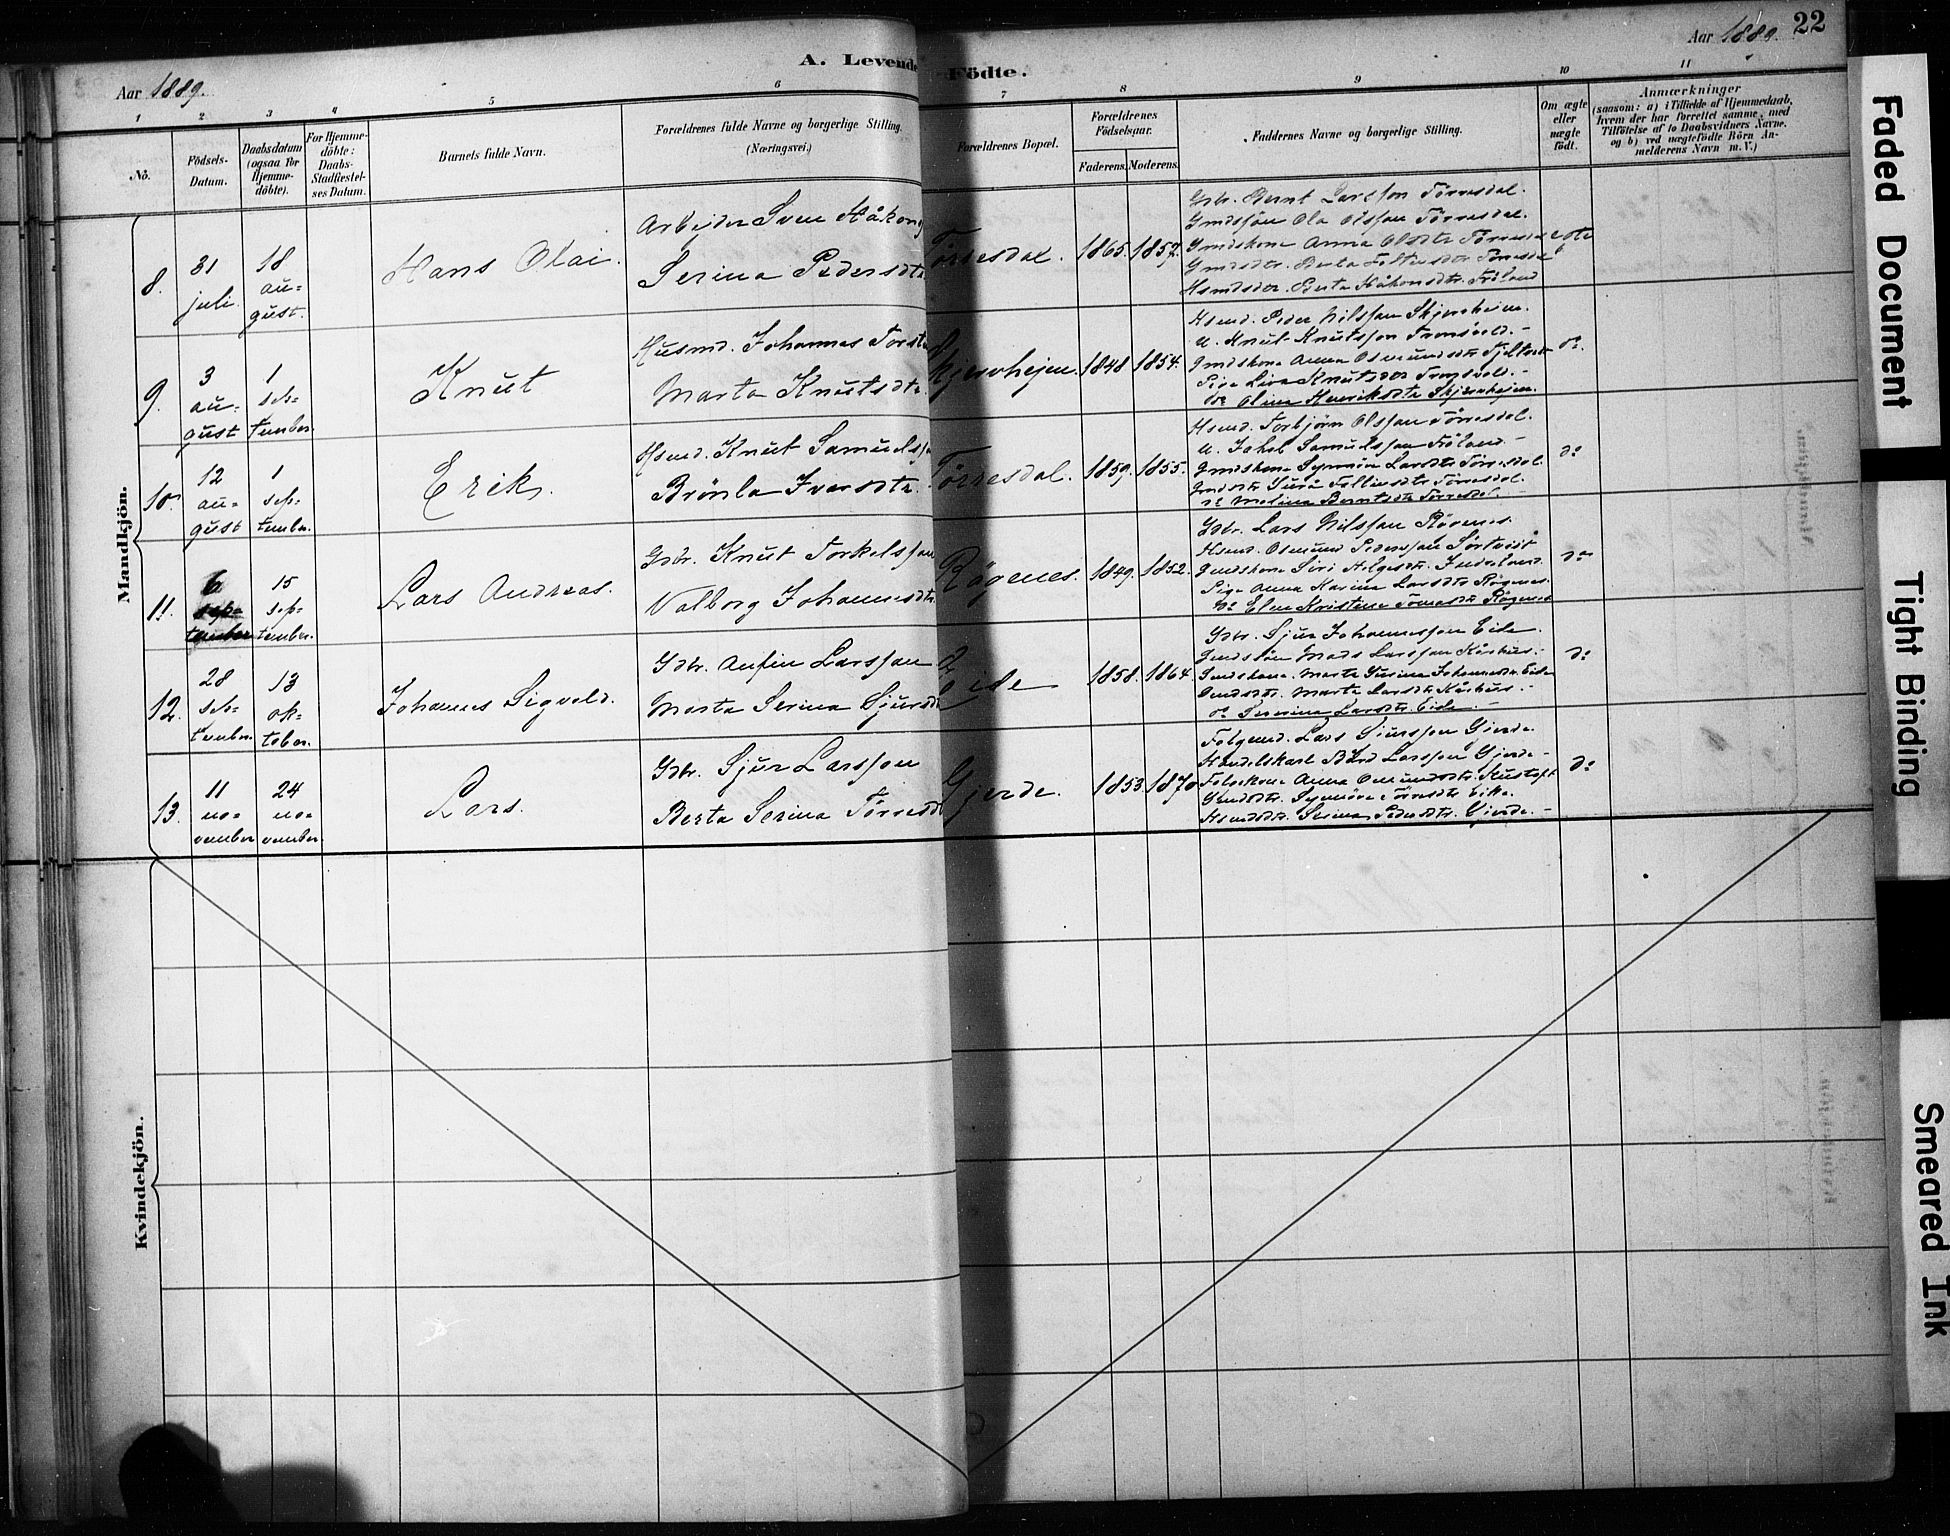 Aar 1889.
A. Levende Födte.
Aar 1889. 22
1 2 3 4 5 6 7 8 9 10 11
No.
Födsels-Datum.
Daabsdatum (ogsaa for Hjemmedöbte).
For Hjemmedöbte: Daabs-Stadfæstelses Datum.
Barnets fulde Navn.
Forældrenes fulde Navne og borgerlige Stilling. (Næringsvei.)
Forældrenes Bopæl.
Forældrenes Födselsaar.
Faderens. Moderens.
Faddernes Navne og borgerlige Stilling.
Om ægte eller uægte födt.
Anmærkninger
(saasom: a) i Tilfælde af Hjemmedaab,
hvem der har forrettet samme, med
Tilföielse af to Daabsvidners Navne.
og b) ved uægtefödte Börn An-
melderens Navn m. V.)
Mandkjön.
8. 31 juli. 18 august. Hans Olai.
Arbejder Sven Håkons
Serina Pedersdtr
Törresdal. 1865. 1857.
Gbr. Bernt Larsson Törresdal.
Gmdssön Ola Olsson Törresdal.
Gmdskone Anna Olsdtr Törresdal
Gmdsdtr. Berta Törresdal
Hsmdsdtr. Berta Håkonsdtr. Fröland
ægte
9. 3 august 1 september. Knut
Husmd. Johannes Torst
Marta Knutsdtr.
Skjenvhejen. 1848 1854.
Hsmd. Peder Nilsson Skjenvheim.
U. Knut Knutsson
Gmdskone Anna Osmundsdtr
Pige Liva Knutsdtr
do Olina Henriksdtr Skjenvhejen.
do.
10. 12 august 1 september. Erik.
Hsmd. Knut Samuelss
Brönla Iversdtr.
Törresdal. 1859. 1855.
Hsmd. Torbjörn Olsson Törresdal.
U. Jakob Samuelsson Fröland.
Gmdskone Synnöve Larsdtr Törresdal.
Gmdsdtr Törresdal.
do Berntsdtr Törresdal.
do
11. 6 september 15 september. Lars Andreas.
Gbr. Knut Torkelsson
Valborg Johannesdtr.
Rögenes. 1849. 1852.
Gbr. Lars Nilsson Rögenes.
Hsmd. Osmund Pedersson Sörtveit
Gmdskone Siri Helgesdtr.
Pige Anna Karina Larsdtr Rögenes.
do Elen Kristine Rögenes
do
12. 28 september. 13 oktober. Johannes Sigvald.
Gbr. Anfin Larsson
Marta Serina Sjursdtr
Eide 1858. 1864.
Gbr. Sjur Johannesson Eide.
Gmdssön Mads Larsson
Gmdskone. Marta Johannesdtr. Eide
Gmdsdtr. Marta Larsdtr
do Larsdtr. Eide.
do
13. 11 november 24 november. Lars.
Gbr. Sjur Larsson
Berta Serina Törresdt
Gjerde. 1853. 1870
Fölgemd. Lars Sjursson Gjerde.
Handelskarl Bård Larsson Gjerde
Fölgekone Anna Osmundsdtr.
Gmdsdtr. Synnöve Törresdtr
Hsmdsdtr. Serina Pedersdtr. Gjerde.
do
Kvindekjön.
Faded Document
Tight Binding
Smeared Ink